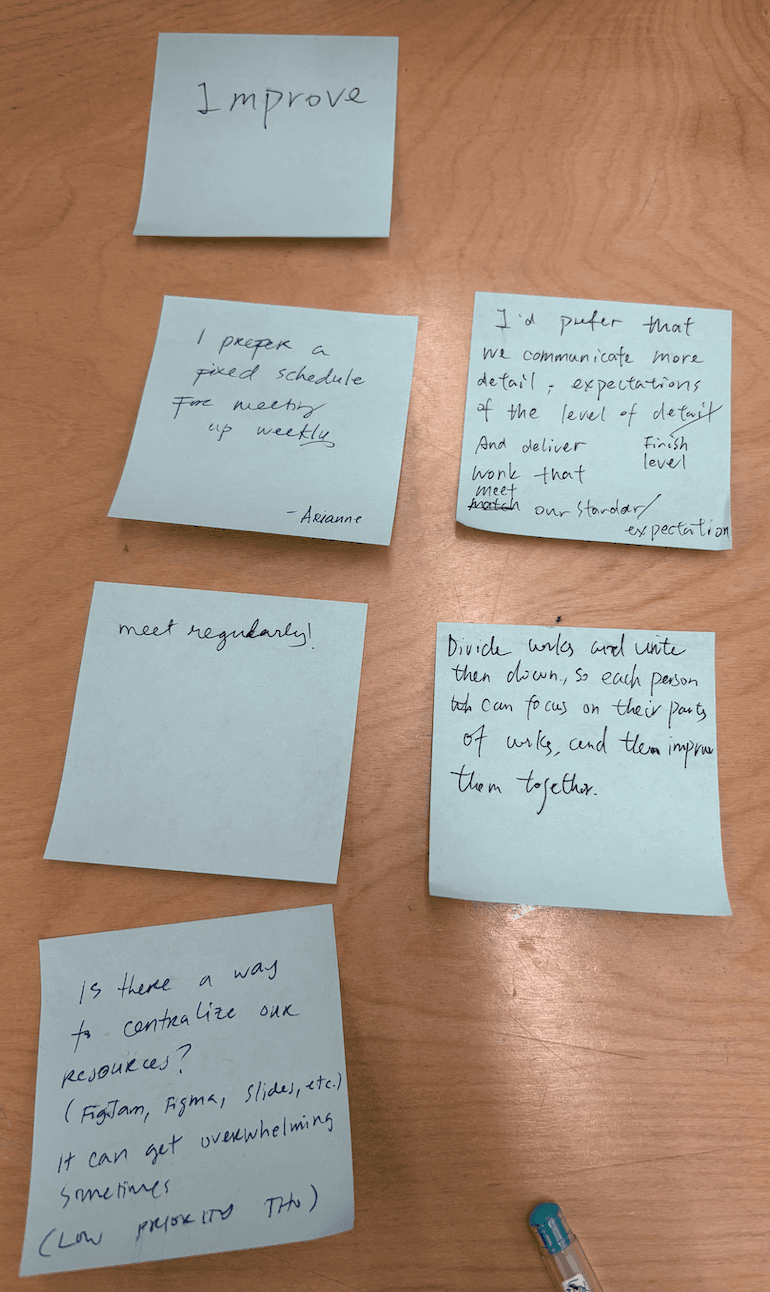 Improve
I prefer a
fixed schedule
For meeting
up weekly
- Arianne
I'd prefer that
we communicate more
detail, expectations
of the level of detail/
Finish
level
And deliver
work that
meet
match our standar/
expectation
meet regularly!
Divide works and write
then down, so each person
can focus on their parts
of works, and then improve
them together.
Is there a way
to centralize our
resources?
(FigJam, Figma, Slides, etc.)
It can get overwhelming
sometimes
(LOW PRIORITY THO)